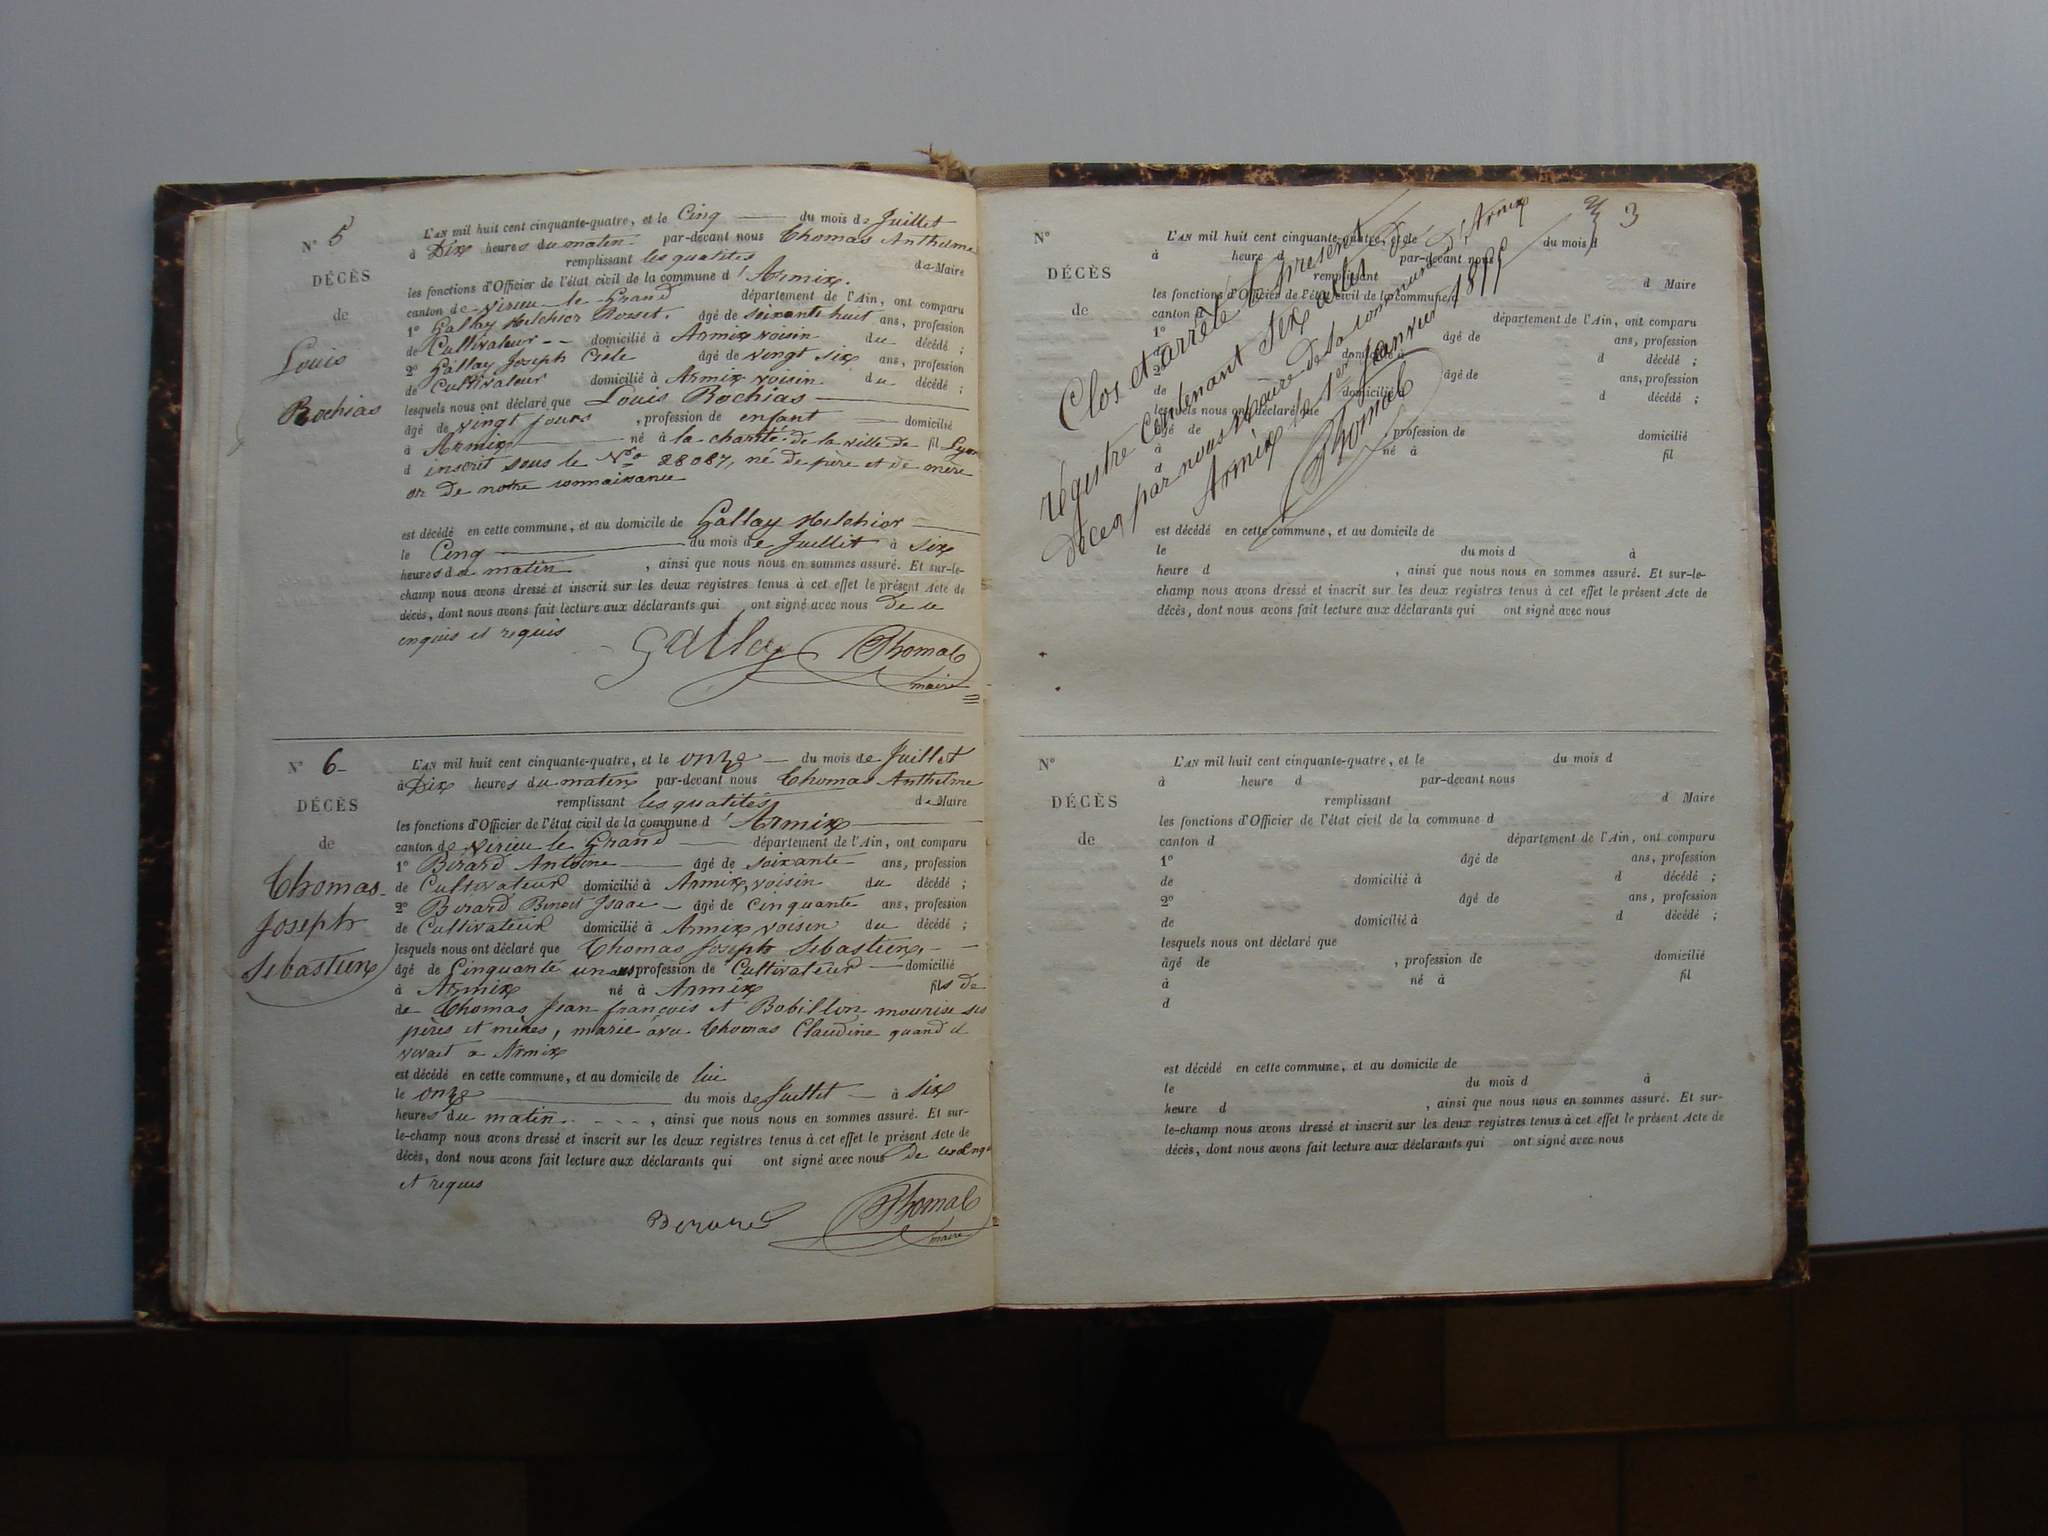 N° 5
DÉCÈS
de
Louis
Rochias
L'AN mil huit cent cinquante-quatre, et le Cinq du mois de Juillet
à Dix heures du matin par-devant nous Thomas Anthelme
remplissant les qualités de Maire
les fonctions d'Officier de l'état civil de la commune d'Armix.
canton de virieu le Grand département de l'Ain, ont comparu
1° Gallay Melchior Rosset. âgé de soixante huit ans, profession
de Cultivateur -- domicilié à Armix voisin du décédé ;
2° Gallay Joseph âgé de vingt six ans, profession
de Cultivateur domicilié à Armix voisin du décédé ;
lesquels nous ont déclaré que Louis Rochias
âgé de vingt jours , profession de enfant domicilié
à Armix né à la charité de la ville de fil Lyon
d inscrit sous le N° 28087, né de père et de mère
on de notre connaissance
est décédé en cette commune, et au domicile de Gallay Melchior
le Cinq du mois de Juillet à six
heures du matin , ainsi que nous nous en sommes assuré. Et sur-le-
champ nous avons dressé et inscrit sur les deux registres tenus à cet effet le présent Acte de
décès, dont nous avons fait lecture aux déclarants qui ont signé avec nous de ce
enquis et requis
Gallay Thomas
maire
N° 6-
DÉCÈS
de
Thomas
Joseph
Sebastien
L'AN mil huit cent cinquante-quatre, et le onze du mois de Juillet
à Dix heures du matin par-devant nous Thomas Anthelme
remplissant les qualités de Maire
les fonctions d'Officier de l'état civil de la commune d'Armix
canton de virieu le Grand département de l'Ain, ont comparu
1° Bérard Antoine âgé de soixante ans, profession
de Cultivateur domicilié à Armix, voisin du décédé ;
2° Berard Benoit Isaac âgé de cinquante ans, profession
de Cultivateur domicilié à Armix voisin du décédé ;
lesquels nous ont déclaré que Thomas Joseph Sebastien,
âgé de Cinquante un ans profession de Cultivateur domicilié
à Armix né à Armix fils de
de Thomas Jean françois et Bobillon mourise ses
pères et mères, marie avec Thomas Claudine quand il
vivait a Armix
est décédé en cette commune, et au domicile de lui
le onze du mois de Juillet à six
heures du matin , ainsi que nous nous en sommes assuré. Et sur-
le-champ nous avons dressé et inscrit sur les deux registres tenus à cet effet le présent Acte de
décès, dont nous avons fait lecture aux déclarants qui ont signé avec nous de ce
et requis
Berard Thomas
maire
3
N°
DÉCÈS
de
L'AN mil huit cent cinquante-quatre, et le du mois d
à heure d par-devant nous
remplissant d Maire
les fonctions d'Officier de l'état civil de la commune d
canton d département de l'Ain, ont comparu
1° âgé de ans, profession
de domicilié à d décédé ;
2° âgé de ans, profession
de domicilié à d décédé ;
lesquels nous ont déclaré que
âgé de , profession de domicilié
à né à fil
d
Clos et arrêté le présent
régistre contenant Six actes de
décés, par nous Maire de la commune d'Armix
Armix le 1er Janvier 1855
Thomas
est décédé en cette commune, et au domicile de
le du mois d à
heure d , ainsi que nous nous en sommes assuré. Et sur-le-
champ nous avons dressé et inscrit sur les deux registres tenus à cet effet le présent Acte de
décès, dont nous avons fait lecture aux déclarants qui ont signé avec nous
N°
DÉCÈS
de
L'AN mil huit cent cinquante-quatre, et le du mois d
à heure d par-devant nous
remplissant d Maire
les fonctions d'Officier de l'état civil de la commune d
canton d département de l'Ain, ont comparu
1° âgé de ans, profession
de domicilié à d décédé ;
2° âgé de ans, profession
de domicilié à d décédé ;
lesquels nous ont déclaré que
âgé de , profession de domicilié
à né à fil
d
est décédé en cette commune, et au domicile de
le du mois d à
heure d , ainsi que nous nous en sommes assuré. Et sur-
le-champ nous avons dressé et inscrit sur les deux registres tenus à cet effet le présent Acte de
décès, dont nous avons fait lecture aux déclarants qui ont signé avec nous